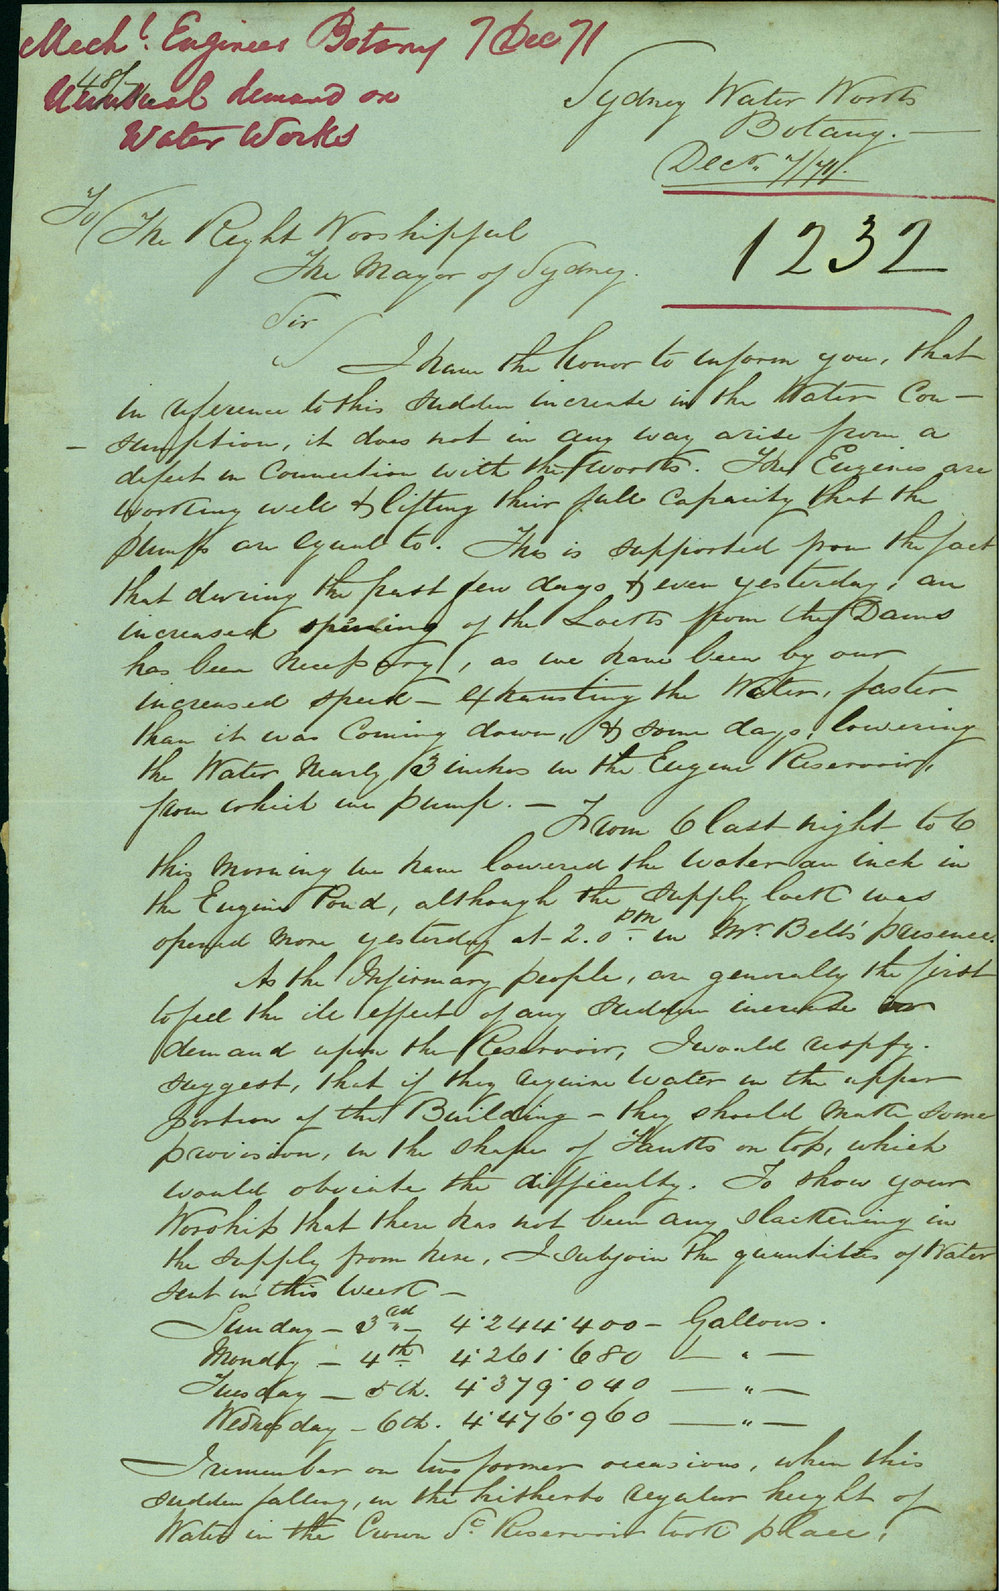 Mechl. Engineer Botany 7 Dec 71
Unusual demand on
Water Works
Sydney Water Works
Botany. —
Decr. 7/71.
1232
To The Right Worshipful
The Mayor of Sydney.
Sir
I have the honor to inform you, that
in reference to this sudden increase in the Water Con —
— sumption, it does not in any way arise from a
defect in Connection with the works. The Engines are
working well & lifting their full capacity that the
pumps are equal to. This is supported from the fact
that during the past few days & even yesterday, an
increased opening of the Locks from the Dams
has been necessary, as we have been by our
increased speed — exhausting the Water, faster
than it was Coming down, & some days, lowering
the Water Nearly 3 inches in the Engine Reservoir,
from which we pump. — From 6 last night to 6
this morning we have lowered the water an inch in
the Engine Pond, although the supply lock was
opened more yesterday at 2.0 pm in Mr. Bell's presence.
As the Infirmary people, are generally the first
to feel the ill effect of any sudden increase or
demand upon the Reservoir, I would respfy.
suggest, that if they require water in the upper
portion of the Building — they should make some
provision, in the shape of Tanks on top, which
would obviate the difficulty. To show your
Worship that there has not been any slackening in
the supply from here, I subjoin the quantities of Water
sent in this week —
Sunday — 3rd — 4.244.400 — Gallons.
Monday — 4th 4.261.680 — " —
Tuesday — 5th. 4.379.040 — " —
Wednesday — 6th. 4.476.960 — " —
I remember on two former occasions, when this
sudden falling, in the hitherto regular height of
Water in the Crown St Reservoir took place,